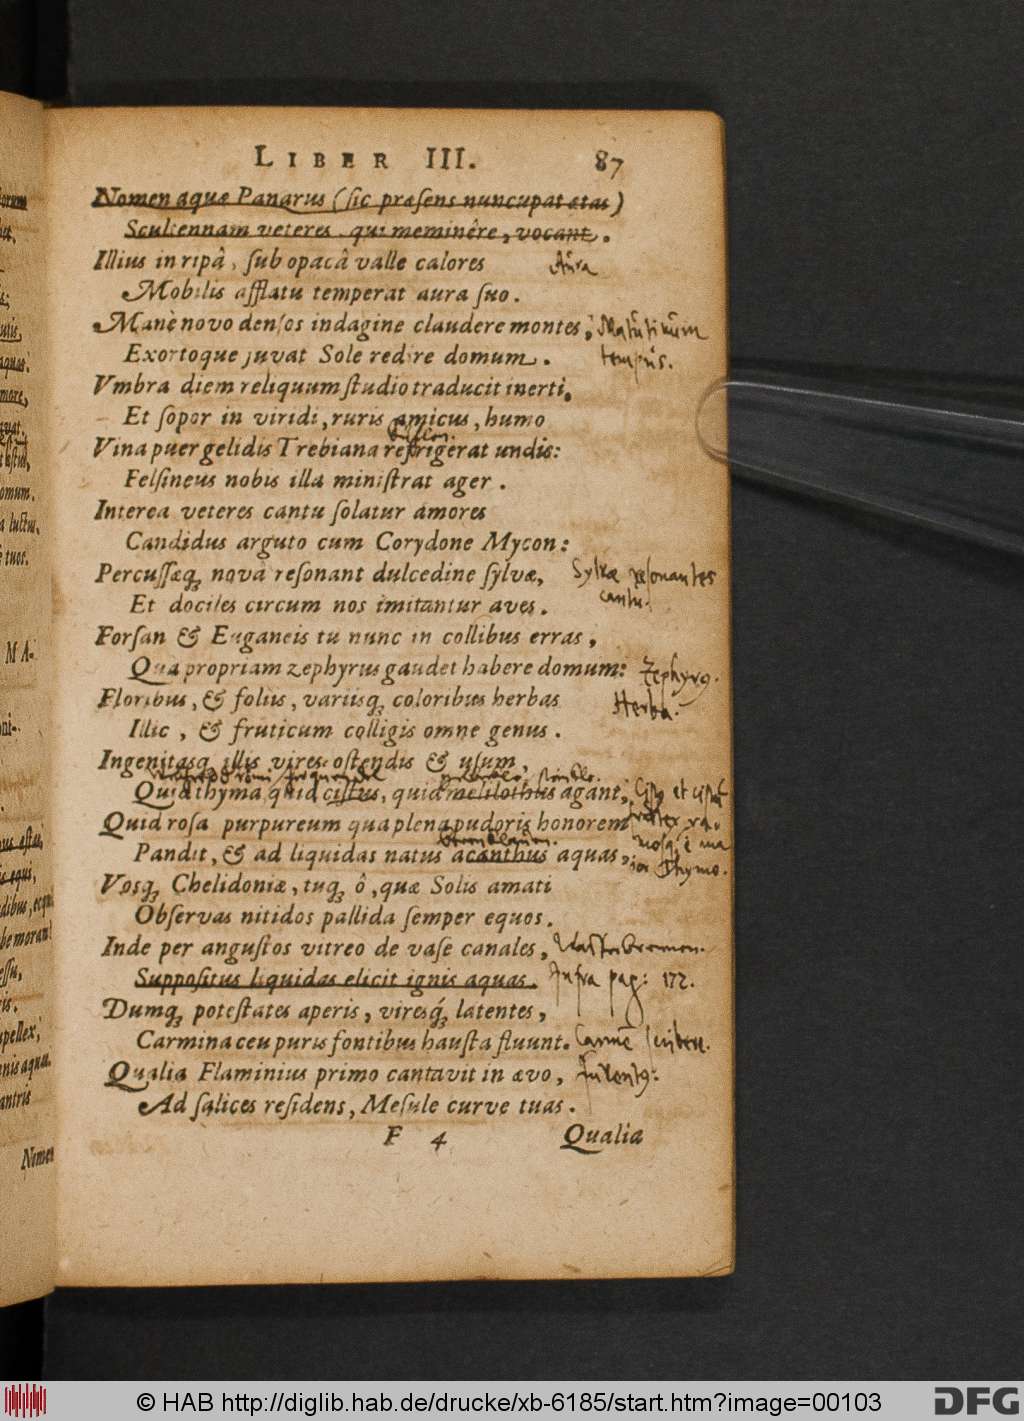 LIBER III. 87
Nomen aquæ Panarus (ſic præſens nuncupat ætas)
Scultennam veteres, qui meminêre, vocant.
Illius in ripâ, ſub opacâ valle calores
Aura
Mobilis afflatu temperat aura ſuo.
Manè novo denſos indagine claudere montes,
Matutinum
Exortoque juvat Sole redire domum.
tempus.
Vmbra diem reliquum ſtudio traducit inerti,
Et ſopor in viridi, ruris amicus, humo
Vina puer gelidis Trebiana refrigerat undis:
Felſineus nobis illa miniſtrat ager.
Interea veteres cantu ſolatur amores
Candidus arguto cum Corydone Mycon:
Percuſſæq; novâ reſonant dulcedine ſylvæ,
Sylvæ resonantes
Et dociles circum nos imitantur aves.
cantu.
Forſan & Euganeis tu nunc in collibus erras,
Qua propriam zephyrus gaudet habere domum:
Zephyrus.
Floribus, & foliis, variisq; coloribus herbas
Herba.
Illic, & fruticum colligis omne genus.
Ingenitasq; illis vires oſtendis & uſum,
Quid thyma quid ciſtus, quid melilothus agant,
Quid roſa purpureum qua plena pudoris honorem
Pandit, & ad liquidas natus acanthus aquas,
Vosq; Chelidoniæ, tuq; ô, quæ Solis amati
Obſervas nitidos pallida ſemper equos.
Inde per anguſtos vitreo de vaſe canales,
Suppoſitus liquidas elicit ignis aquas.
Infra pag: 172.
Dumq; poteſtates aperis, viresq́; latentes,
Carmina ceu puris fontibus hauſta fluunt.
Qualia Flaminius primo cantavit in ævo,
Ad ſalices reſidens, Meſule curve tuas.
F 4 Qualia
Nomen
© HAB http://diglib.hab.de/drucke/xb-6185/start.htm?image=00103
DFG